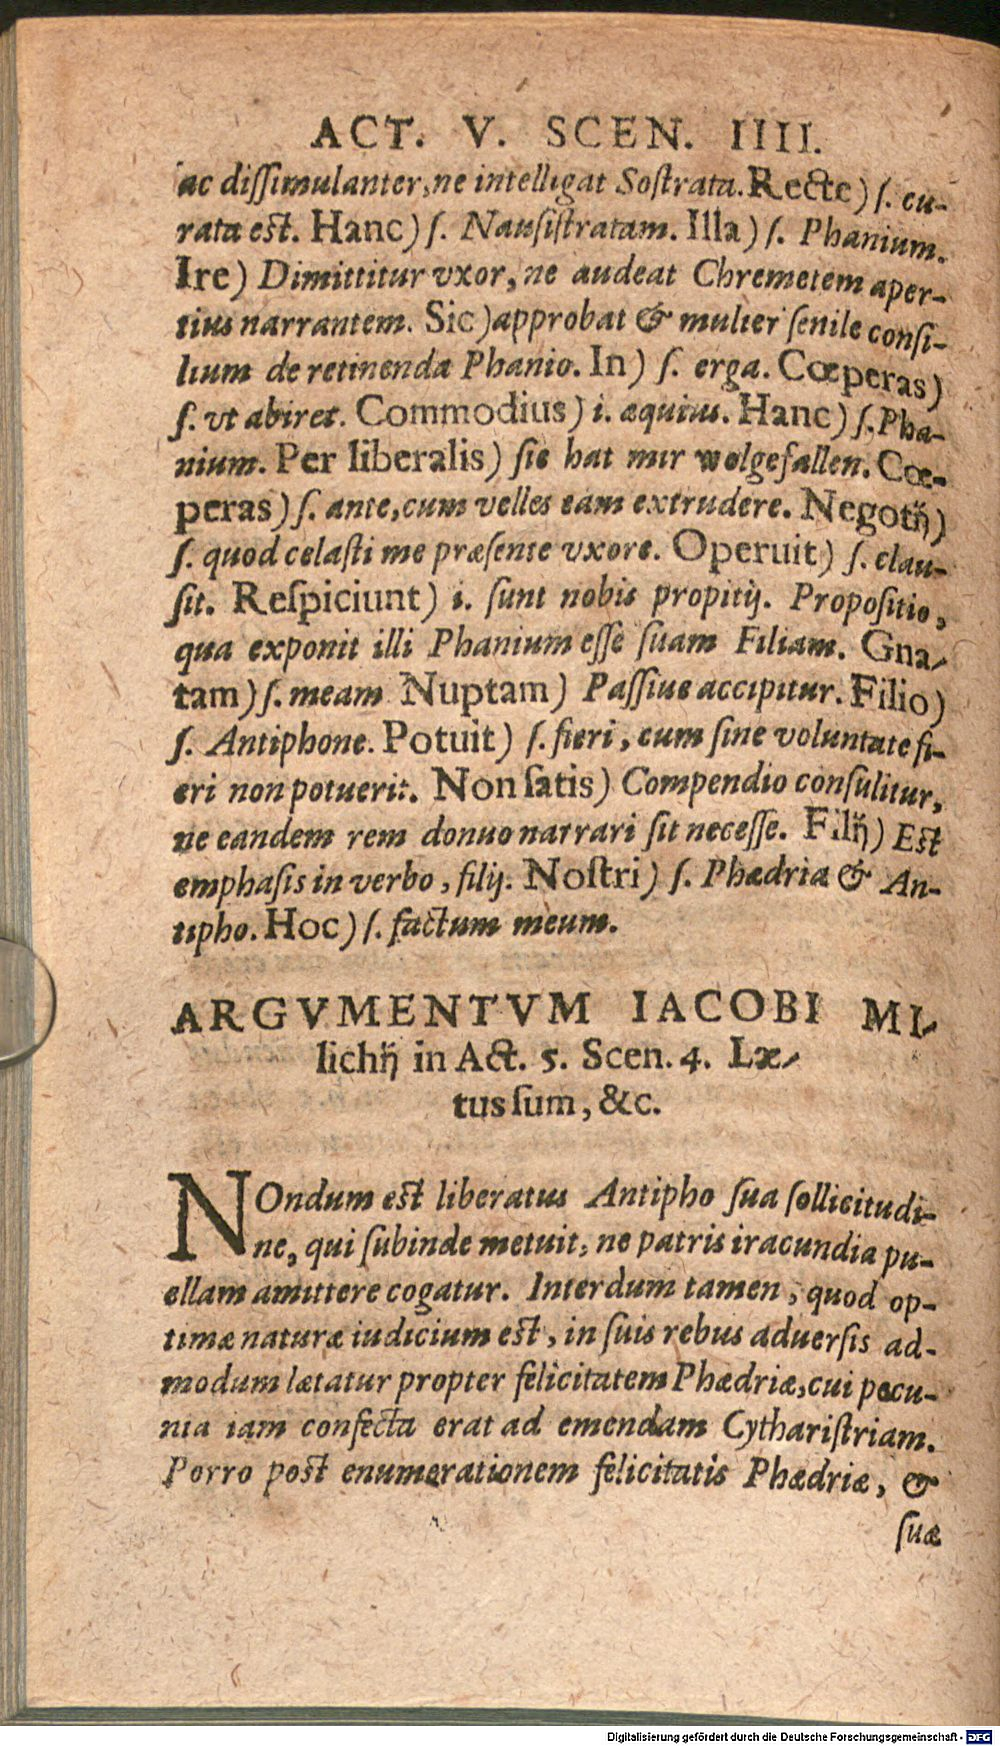 ACT. V. SCEN. IIII.
ac diſſimulanter, ne intelligat Soſtrata. Recte) ſ. cu-
rata est. Hanc) ſ. Nauſiſtratam. Illa) ſ. Phanium.
Ire) Dimittitur vxor, ne audeat Chremetem aper-
tius narrantem. Sic) approbat & mulier ſenile conſi-
lium de retinenda Phanio. In) ſ. erga. Cœperas)
ſ. vt abiret. Commodius) i. æquius. Hanc) ſ. Pha-
nium. Per liberalis) ſie hat mir wolgefallen. Cœ-
peras) ſ. ante, cum velles eam extrudere. Negotij)
ſ. quod celaſti me præſente vxore. Operuit) ſ. clau-
ſit. Reſpiciunt) i. ſunt nobis propitij. Propoſitio,
qua exponit illi Phanium eſſe ſuam Filiam. Gna-
tam) ſ. meam Nuptam) Paſſiue accipitur. Filio)
ſ. Antiphone. Potuit) ſ. fieri, cum ſine voluntate fi-
eri non potuerit. Non ſatis) Compendio conſulitur,
ne eandem rem donuo narrari ſit neceſſe. Filij) Est
emphaſis in verbo, filij. Noſtri) ſ. Phædria & An-
tipho. Hoc) ſ. factum meum.
ARGVMENTVM IACOBI MI-
lichij in Act. 5. Scen. 4. Læ-
tus ſum, &c.
NOndum est liberatus Antipho ſua ſollicitudi-
ne, qui ſubinde metuit, ne patris iracundia pu-
ellam amittere cogatur. Interdum tamen, quod op-
timæ naturæ iudicium est, in ſuis rebus aduerſis ad-
modum lætatur propter felicitatem Phædriæ, cui pecu-
nia iam confecta erat ad emendam Cythariſtriam.
Porro post enumerationem felicitatis Phædriæ, &
ſuæ
Digitalisierung gefördert durch die Deutsche Forschungsgemeinschaft - DFG